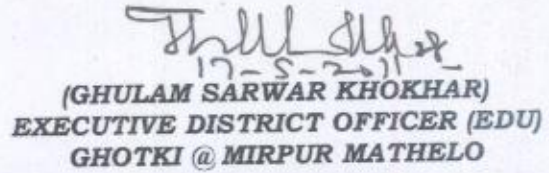 17-5-2011
(GHULAM SARWAR KHOKHAR)
EXECUTIVE DISTRICT OFFICER (EDU)
GHOTKI @ MIRPUR MATHELO